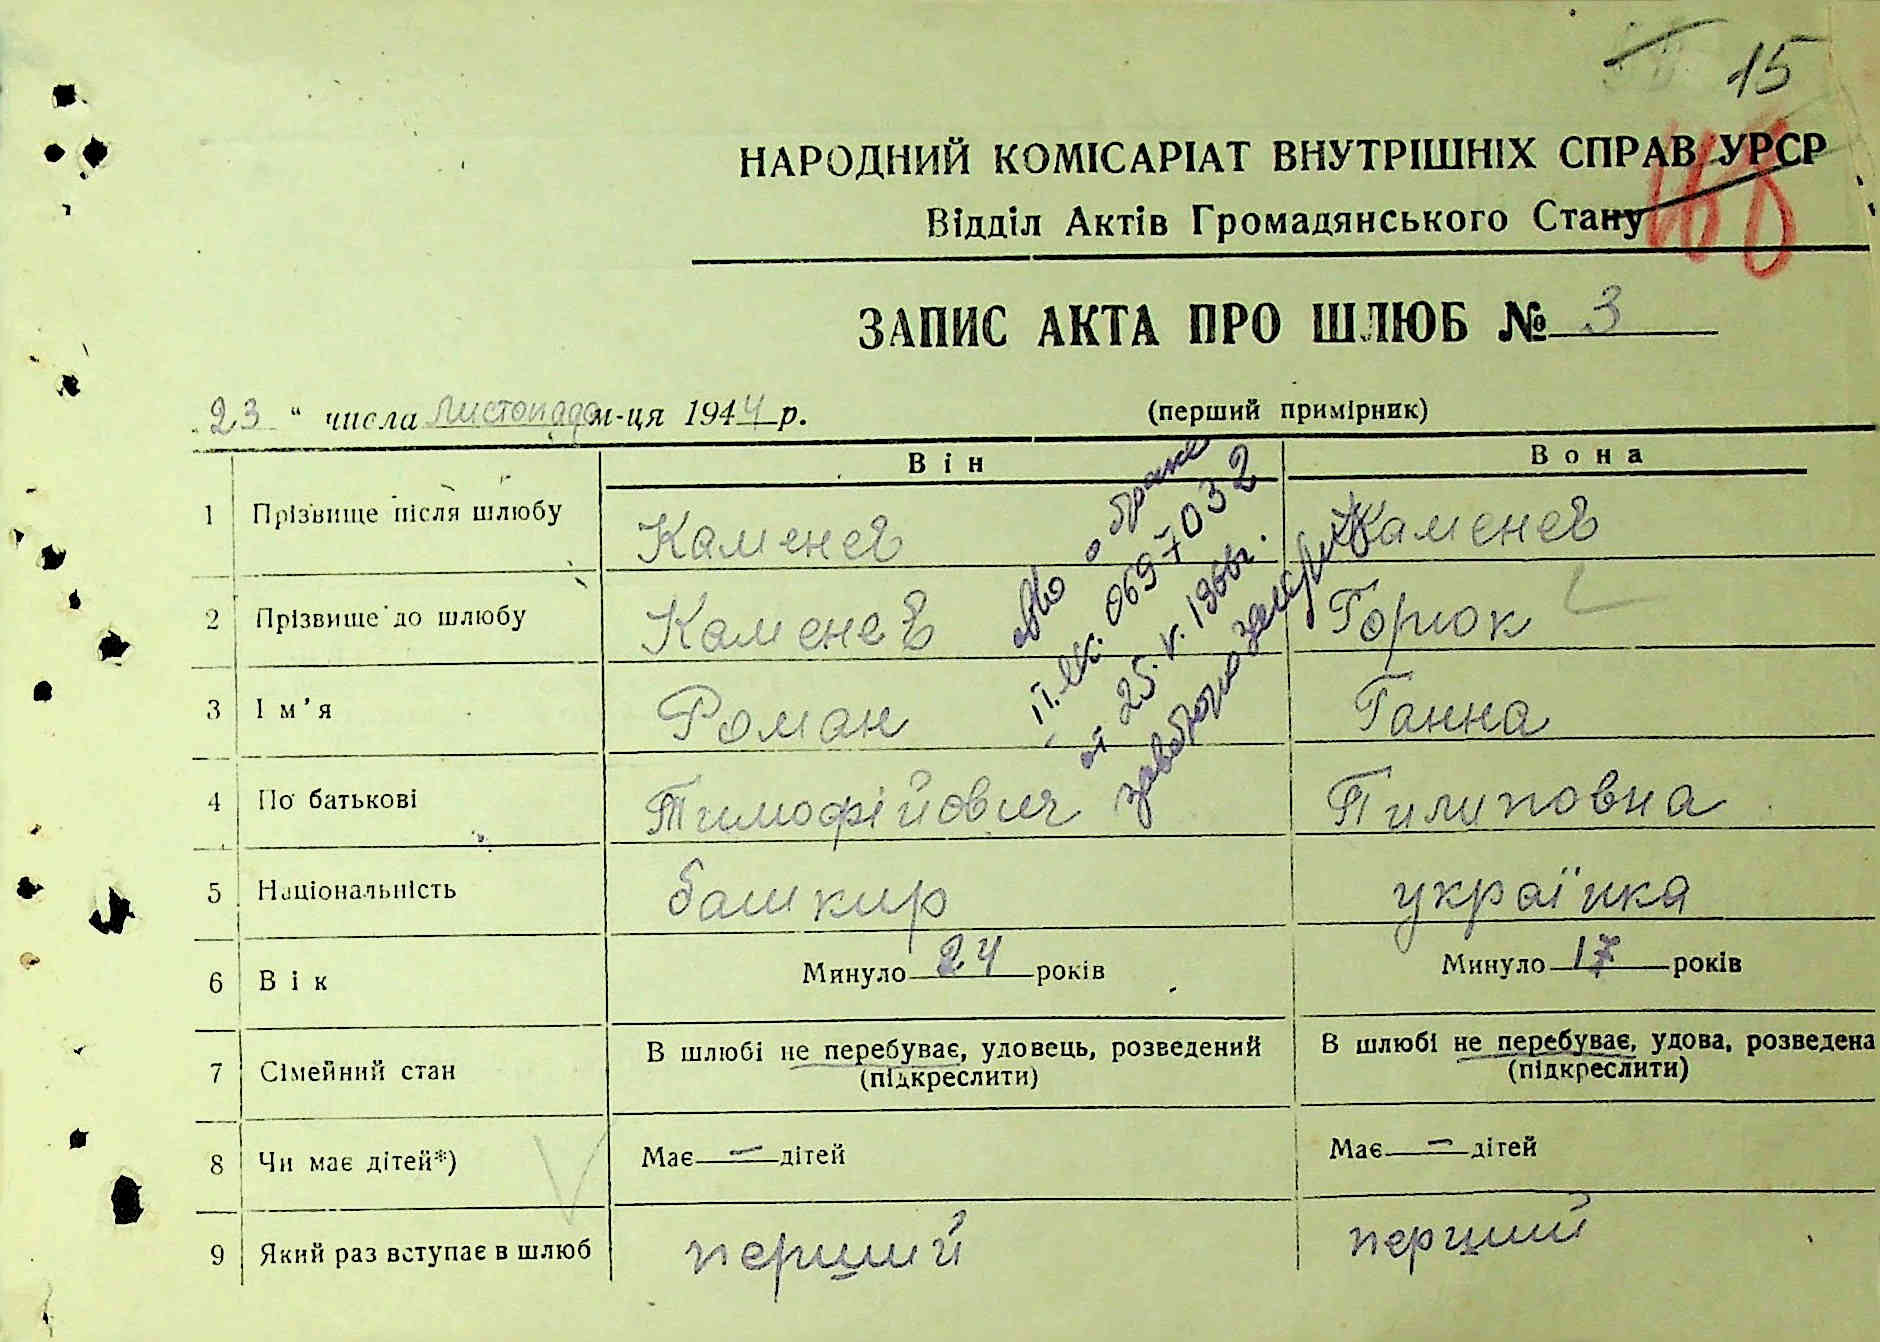 15
НАРОДНИЙ КОМІСАРІАТ ВНУТРІШНІХ СПРАВ УРСР
Відділ Актів Громадянського Стану
ЗАПИС АКТА ПРО ШЛЮБ № 3
23 " числа листопада м-ця 1944 р. (перший примірник)
Він Вона
1 Прізвище після шлюбу Каменев Каменев
2 Прізвище до шлюбу Каменев Горюк
3 Ім'я Роман Ганна
4 По батькові Тимофійович Пилиповна
5 Національність башкир українка
6 Вік Минуло 24 років Минуло 17 років
7 Сімейний стан В шлюбі не перебуває, удовець, розведений (підкреслити) В шлюбі не перебуває, удова, розведена (підкреслити)
8 Чи має дітей*) Має — дітей Має — дітей
9 Який раз вступає в шлюб перший перший
о браке
0697032
25. V. 1966г.